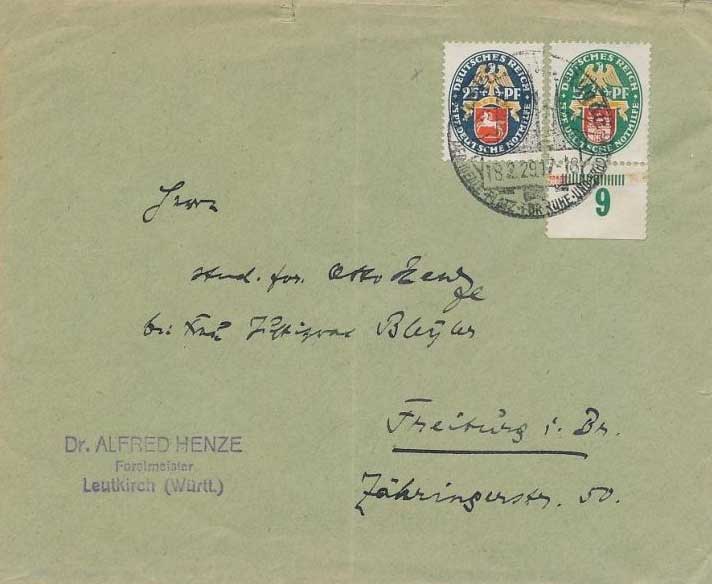 DEUTSCHES REICH
25+ PF
DEUTSCHE NOTHILFE
DEUTSCHES REICH
5+ PF
DEUTSCHE NOTHILFE
18.2.29.17-18
PLATZ FÜR RUHE UND
9
Herrn
stud. for. Otto Henze
bei Frau Justizrat
Freiburg i. Br.
Zähringerstr. 50.
Dr. ALFRED HENZE
Forstmeister
Leutkirch (Württ.)